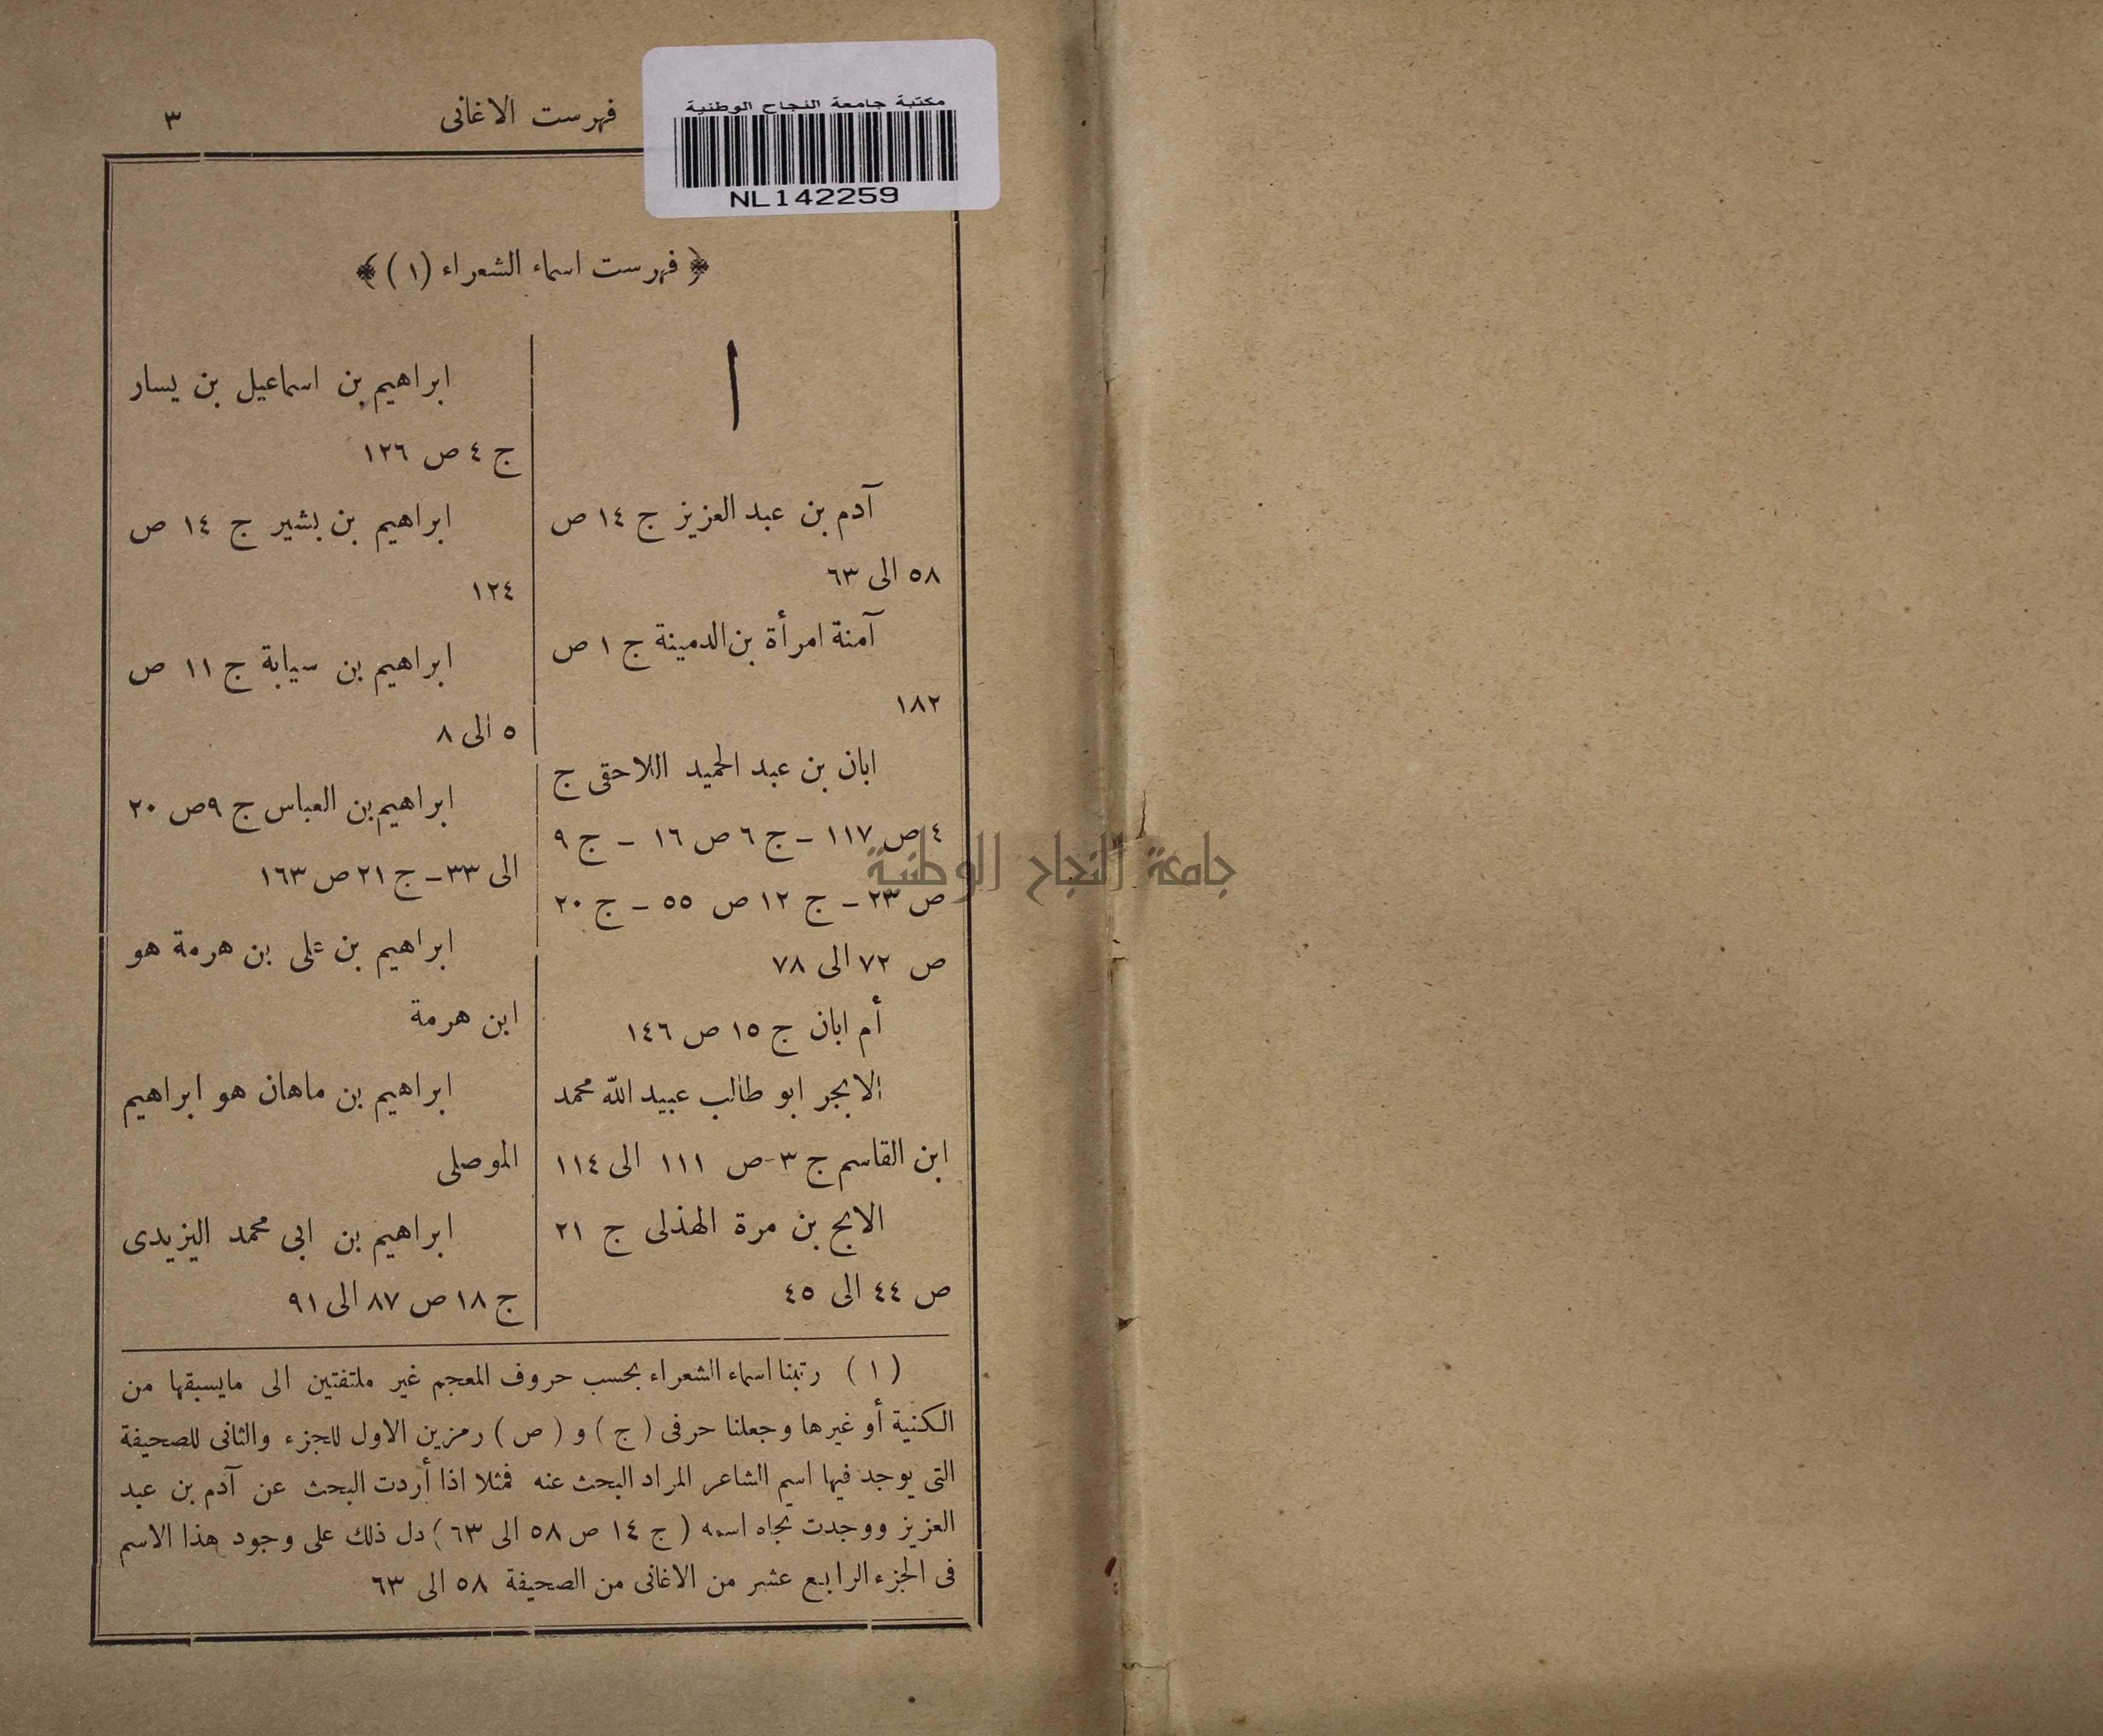 فهرست الاغانى
٣
مكتبة جامعة النجاح الوطنية
NL142259
﴿ فهرست اسماء الشعراء (١) ﴾
ا
آدم بن عبد العزيز ج ١٤ ص
٥٨ الى ٦٣
آمنة امرأة بن الدمينة ج ١ ص
١٨٢
ابان بن عبد الحميد اللاحقى ج
٤ ص ١١٧ – ج ٦ ص ١٦ – ج ٩
ص ٢٣ – ج ١٢ ص ٥٥ – ج ٢٠
ص ٧٢ الى ٧٨
أم ابان ج ١٥ ص ١٤٦
الابجر ابو طالب عبيد الله محمد
ابن القاسم ج ٣-ص ١١١ الى ١١٤
الابج بن مرة الهذلى ج ٢١
ص ٤٤ الى ٤٥
ابراهيم بن اسماعيل بن يسار
ج ٤ ص ١٢٦
ابراهيم بن بشير ج ١٤ ص
١٢٤
ابراهيم بن سيابة ج ١١ ص
٥ الى ٨
ابراهيم بن العباس ج ٩ ص ٢٠
الى ٣٣ – ج ٢١ ص ١٦٣
ابراهيم بن على بن هرمة هو
ابن هرمة
ابراهيم بن ماهان هو ابراهيم
الموصلى
ابراهيم بن ابى محمد اليزيدى
ج ١٨ ص ٨٧ الى ٩١
(١) رتبنا اسماء الشعراء بحسب حروف المعجم غير ملتفتين الى مايسبقها من
الكنية أو غيرها وجعلنا حرفى (ج) و (ص) رمزين الاول للجزء والثانى للصحيفة
التى يوجد فيها اسم الشاعر المراد البحث عنه فمثلا اذا أردت البحث عن آدم بن عبد
العزيز ووجدت تجاه اسمه (ج ١٤ ص ٥٨ الى ٦٣) دل ذلك على وجود هذا الاسم
فى الجزء الرابع عشر من الاغانى من الصحيفة ٥٨ الى ٦٣
جامعة النجاح الوطنية